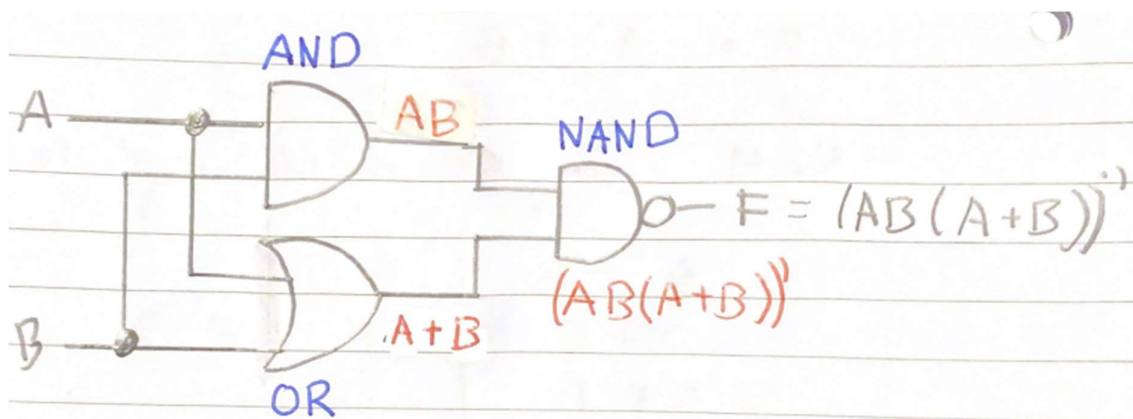 AND
A
AB
NAND
F = (AB(A+B))'
(AB(A+B))'
B
A+B
OR